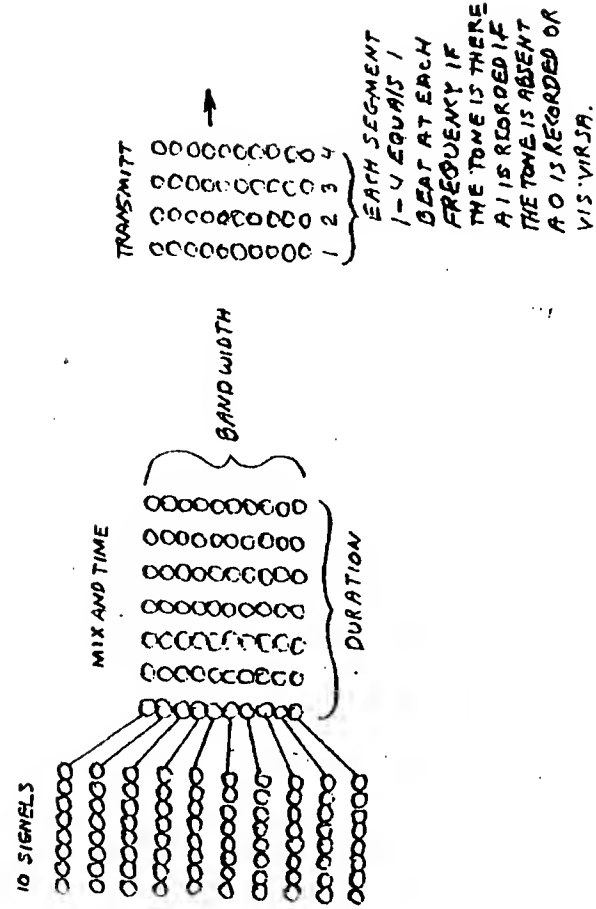 10 SIGNELS
MIX AND TIME
BANDWIDTH
DURATION
TRANSMITT
1 2 3 4
EACH SEGMENT
1-4 EQUALS 1
BEAT AT EACH
FREQUENCY IF
THE TONE IS THERE
A 1 IS RECORDED IF
THE TONE IS ABSENT
A 0 IS RECORDED OR
VIS VIRSA.